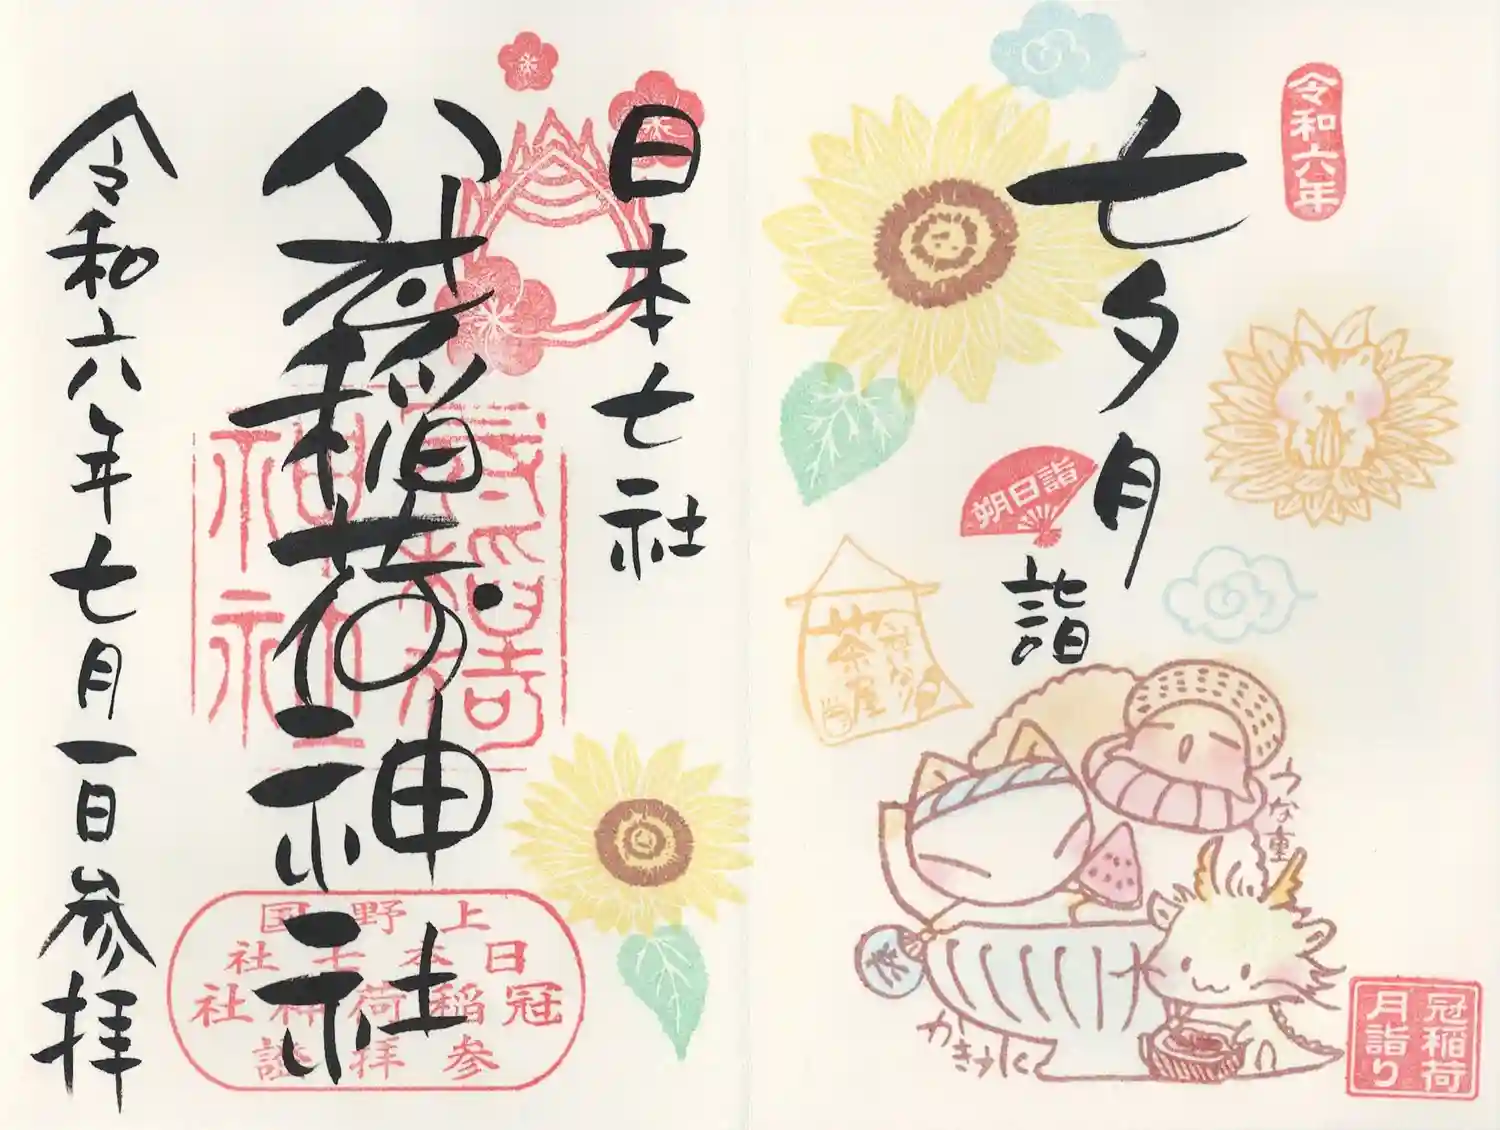 令和六年
七夕月
詣
朔日詣
茶屋
うな重
かき氷
冠稲荷
月詣り
日本七社
冠稲荷神社
冠稲荷
神社
上野国
日本七社
冠稲荷神社
参拝証
令和六年七月一日参拝